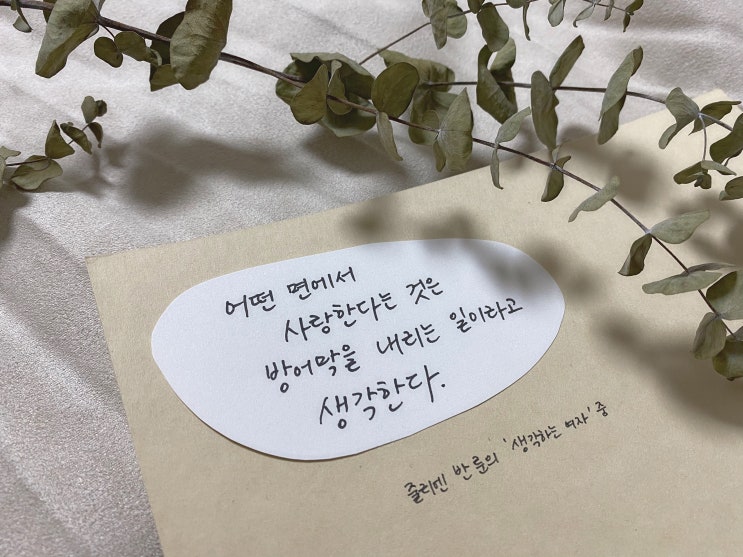 어떤 면에서
사랑한다는 것은
방어막을 내리는 일이라고
생각한다.
줄리엔 반 룬의 '생각하는 여자' 중